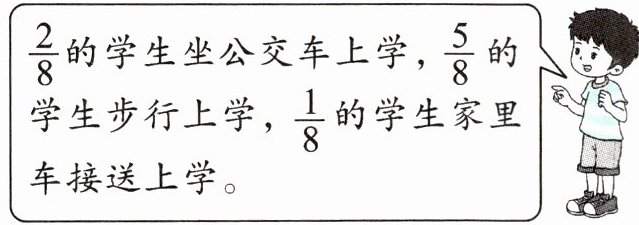 2/8的学生坐公交车上学，5/8的
学生步行上学，1/8的学生家里
车接送上学。